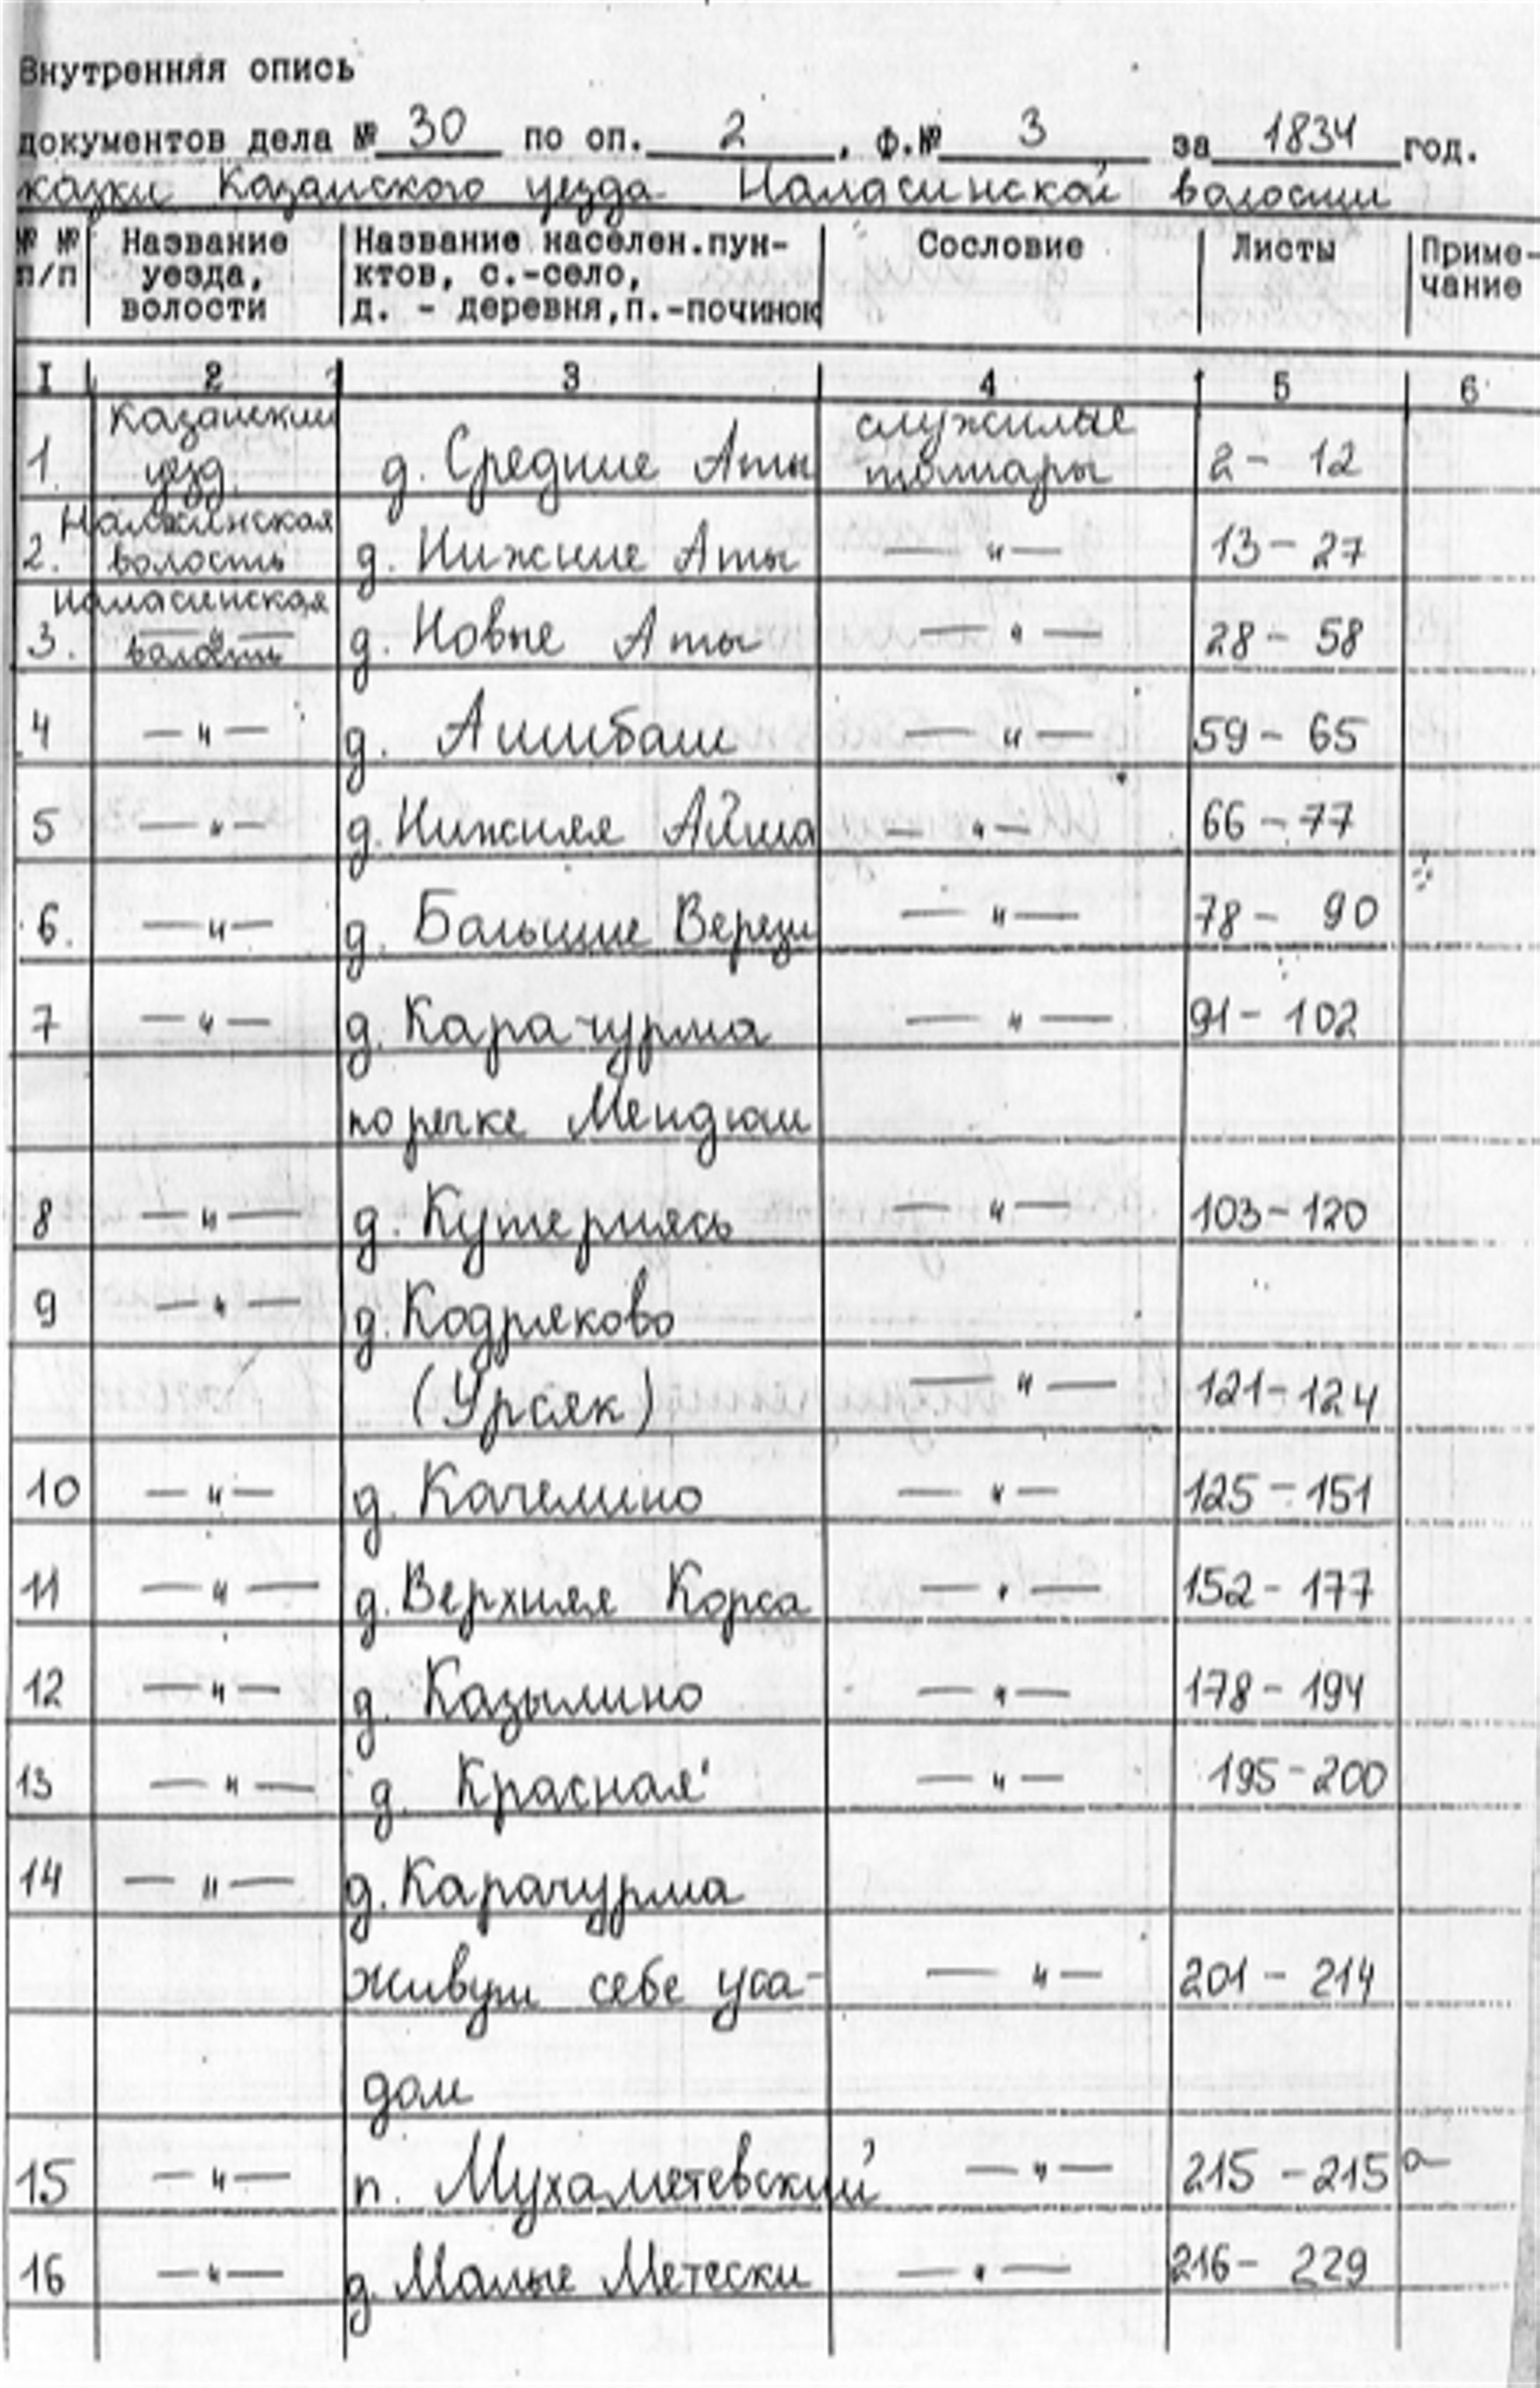 Внутренняя опись
документов дела № 30 по оп. 2, Ф.№ 3 за 1834 год.
казки Казанского уезда Наласинской волости
№ № п/п | Название уезда, волости | Название населен.пунктов, с.-село, д. - деревня,п.-починок | Сословие | Листы | Примечание
I 2 3 4 5 6
1. Казанский уезд д. Средние Аты служилые татары 2 - 12
2. Наласинская волость д. Нижние Аты — " — 13 - 27
3. Наласинская волость д. Новые Аты — " — 28 - 58
4 — " — д. Ашибаш — " — 59 - 65
5 — " — д. Нижняя Айша — " — 66 - 77
6. — " — д. Большие Верези — " — 78 - 90
7 — " — д. Карачурма — " — 91 - 102
по речке Мендюш
8 — " — д. Кутернясь — " — 103 - 120
9 — " — д. Кодряково
(Урсяк) — " — 121 - 124
10 — " — д. Качелино — " — 125 - 151
11 — " — д. Верхняя Корса — " — 152 - 177
12 — " — д. Казылино — " — 178 - 194
13 — " — д. Красная — " — 195 - 200
14 — " — д. Карачурма
живут себе уса- — " — 201 - 214
дом
15 — " — п. Мухаметевский — " — 215 - 215 а
16 — " — д. Малые Метески — " — 216 - 229